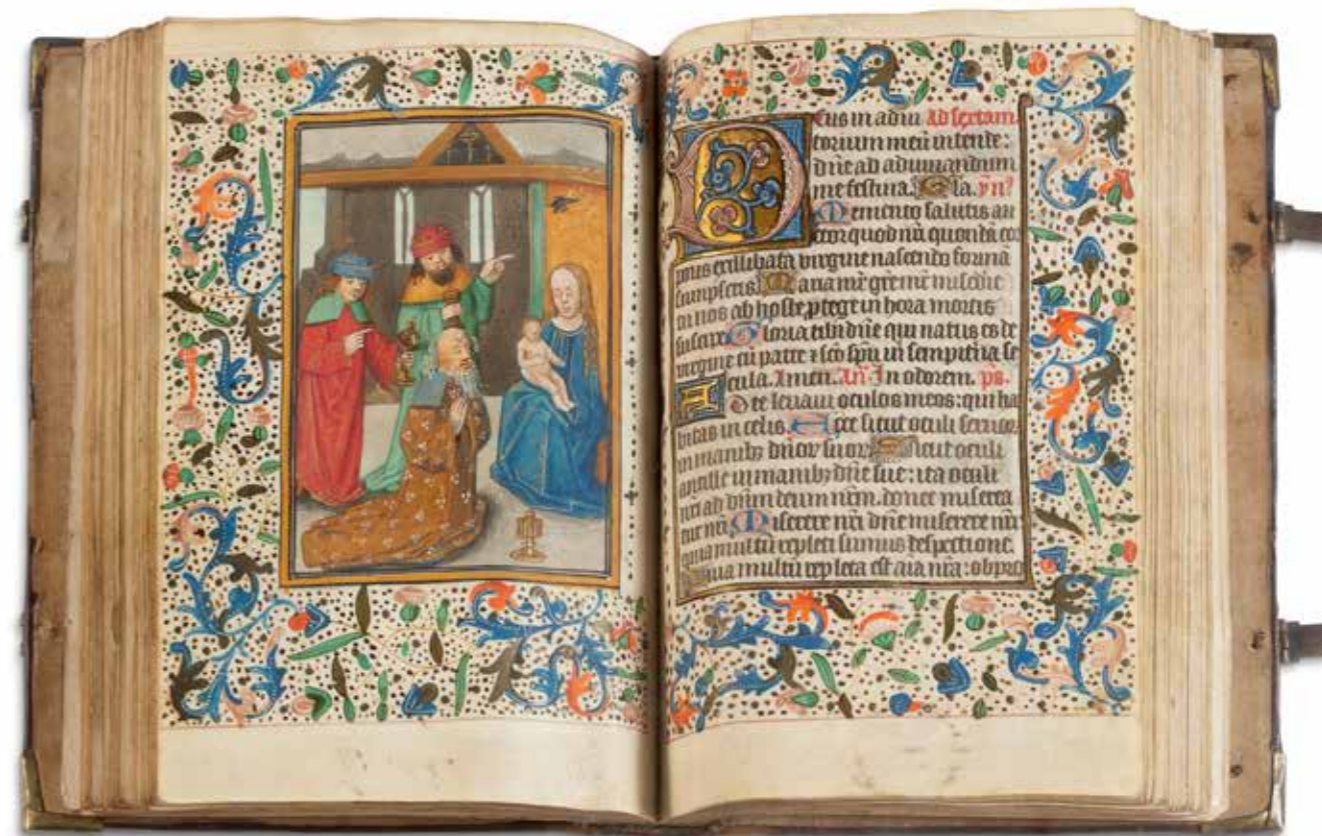 Deus in adiu Ad sextam.
torium meũ intende:
dñe ad adiuuandum
me festina. Gla. ẏn?
Memento salutis au
ctor quod nr̃i quondã cor
poris ex illibata virgine nascendo formã
sumpseris. Maria mr̃ grẽ mr̃ mĩe
tu nos ab hoste ꝓtege in hora mortis
suscipe. Gloria tibi dñe qui natus es de
virgine cũ patre ⁊ sc̃o spũ in sempit̃na se
cula. Amen. An̄ In odorem. ps.
Ad te leuaui oculos meos: qui ha
bitas in celis. Ecce sicut oculi seruor
in manibꝫ dñor suor. Sicut oculi
ancille in manibꝫ dñe sue: ita oculi
nr̃i ad dñm deum nr̃m. donec miserea
tur nr̃i. Miserere nr̃i dñe miserere nr̃i
quia multũ repleti sumus despectione.
Quia multũ repleta est aĩa nr̃a: obpro